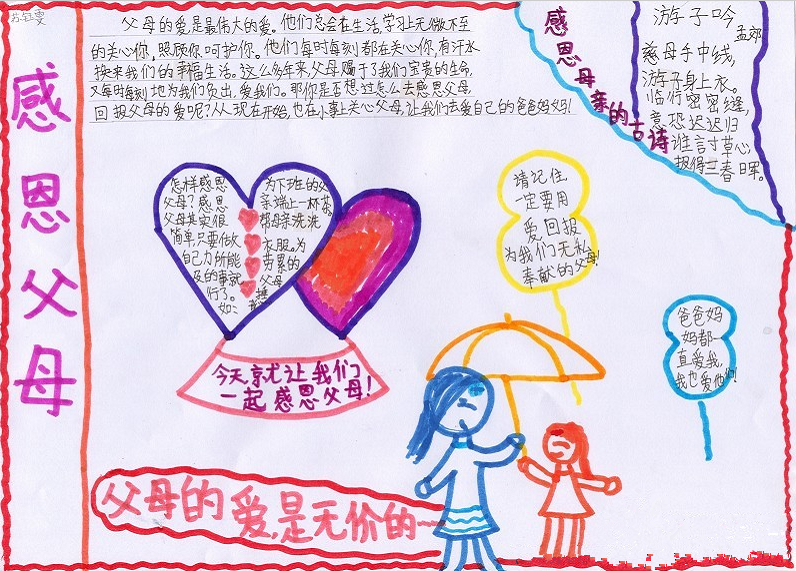 感恩父母
父母的爱是最伟大的爱。他们总会在生活,学习上无微不至
的关心你,照顾你,呵护你。他们每时每刻都在关心你,有汗水
换来我们的幸福生活。这么多年来,父母赐于了我们宝贵的生命,
又每时每刻地为我们负出,爱我们。那你是否想过怎么去感恩父母,
回报父母的爱呢?从现在开始,也在小事上关心父母,让我们去爱自己的爸爸妈妈!
感恩母亲的古诗
游子吟
孟郊
慈母手中线,
游子身上衣。
临行密密缝,
意恐迟迟归
谁言寸草心,
报得三春晖。
怎样感恩
父母?感恩
父母其实很
简单,只要做放
自己力所能
及的事就
行了。
如:
为下班的父
亲端上一杯茶。
帮母亲洗洗
衣服。为
劳累的
父母
请记住,
一定要用
爱回报
为我们无私
奉献的父母!
爸爸妈
妈都一
直爱我,
我也爱他们!
今天,就让我们
一起感恩父母!
父母的爱,是无价的…